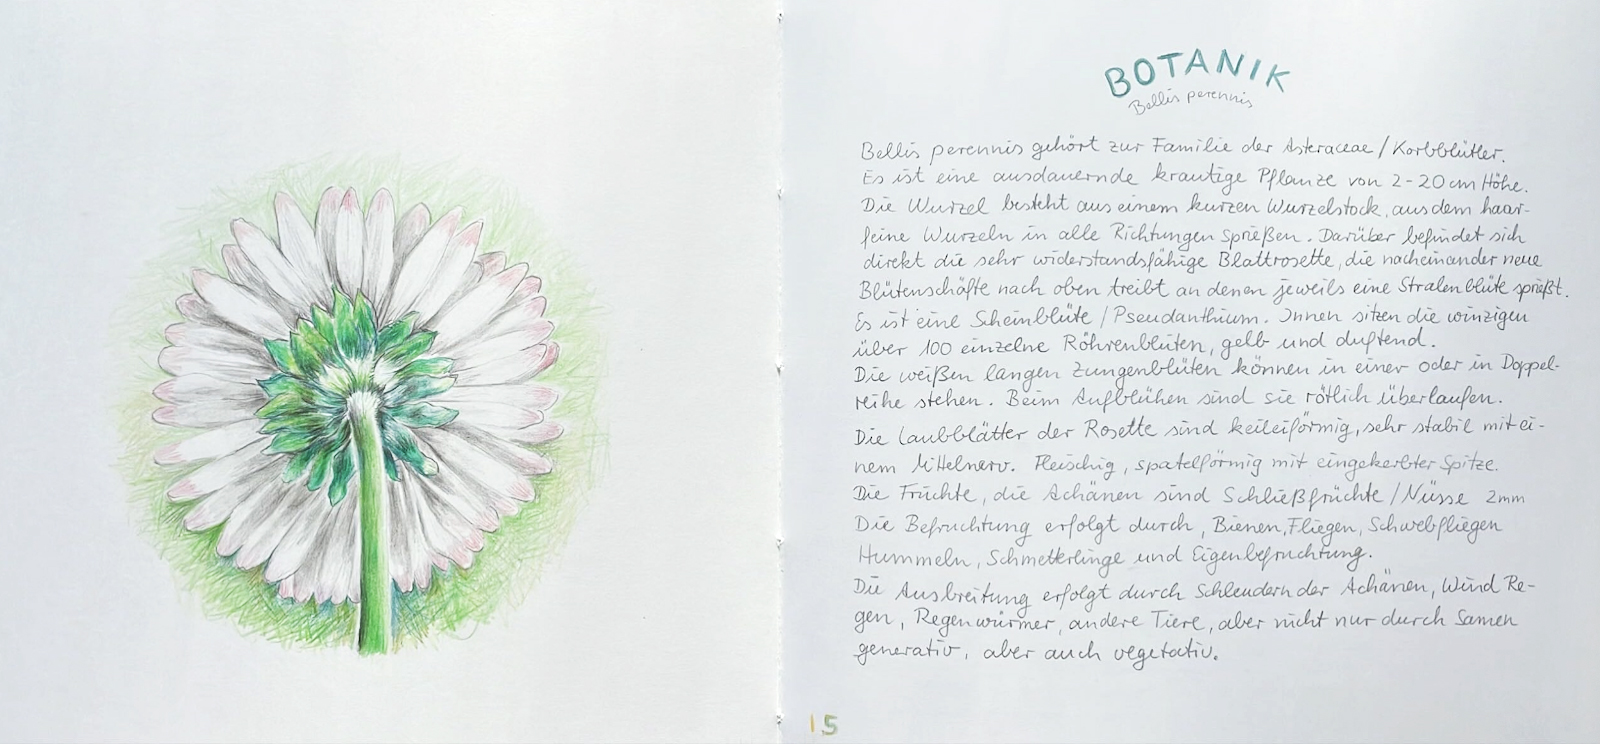 BOTANIK
Bellis perennis
Bellis perennis gehört zur Familie der Asteraceae / Korbblütler.
Es ist eine ausdauernde krautige Pflanze von 2-20 cm Höhe.
Die Wurzel besteht aus einem kurzen Wurzelstock, aus dem haar-
feine Wurzeln in alle Richtungen sprießen. Darüber befindet sich
direkt die sehr widerstandsfähige Blattrosette, die nacheinander neue
Blütenschäfte nach oben treibt an denen jeweils eine Stralenblüte sprießt.
Es ist eine Scheinblüte / Pseudanthium. Innen sitzen die winzigen
über 100 einzelne Röhrenblüten, gelb und duftend.
Die weißen langen Zungenblüten können in einer oder in Doppel-
reihe stehen. Beim Aufblühen sind sie rötlich überlaufen.
Die Laubblätter der Rosette sind keileiförmig, sehr stabil mit ei-
nem Mittelnerv. Fleischig, spatelförmig mit eingekerbter Spitze.
Die Früchte, die Achänen sind Schließfrüchte / Nüsse 2mm
Die Befruchtung erfolgt durch, Bienen, Fliegen, Schwebfliegen
Hummeln, Schmetterlinge und Eigenbefruchtung.
Die Ausbreitung erfolgt durch Schleudern der Achänen, Wind Re-
gen, Regenwürmer, andere Tiere, aber nicht nur durch Samen
generativ, aber auch vegetativ.
15